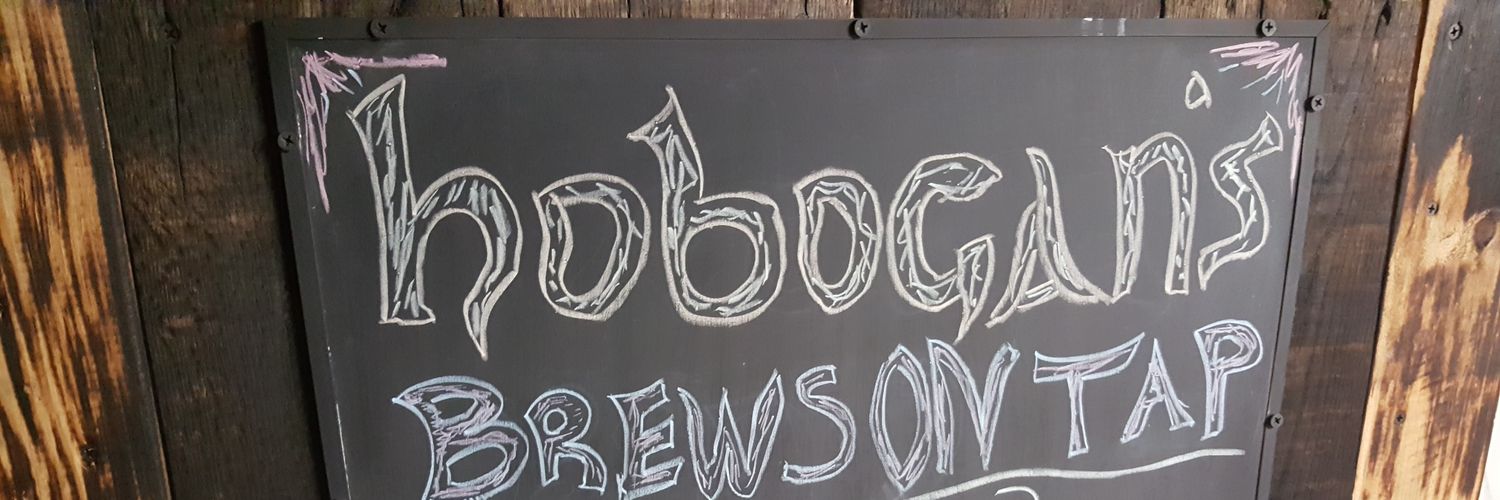 hobogan's
BREWS ON TAP